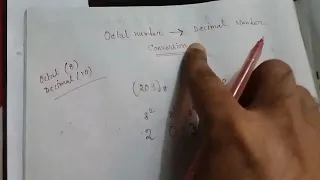 Octal number → Decimal Number
Conversion
Octal (8)
Decimal (10)
(203)8
8²
2